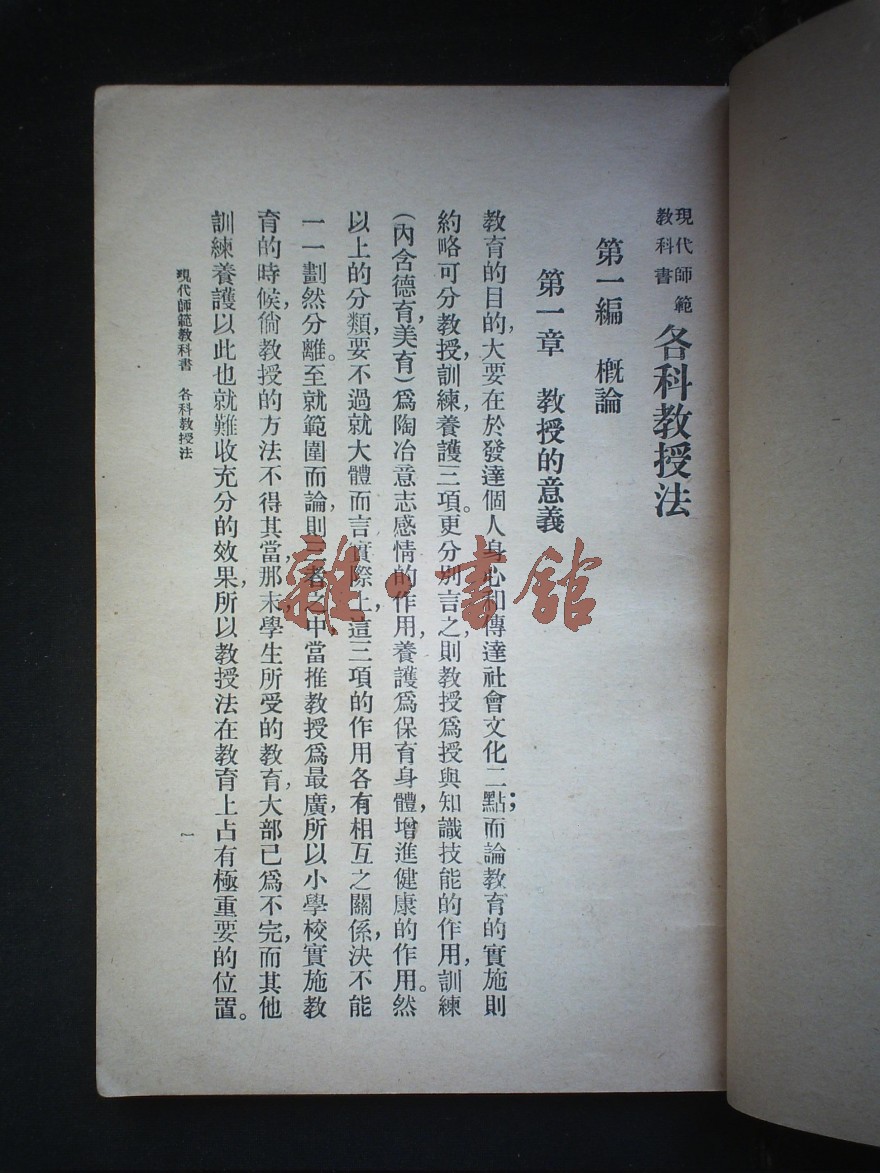 現代師範
教科書
各科教授法
第一編 概論
第一章 教授的意義
教育的目的，大要在於發達個人身心和傳達社會文化二點；而論教育的實施則
約略可分教授，訓練養護三項。更分別言之則教授爲授與知識技能的作用，訓練
(內含德育，美育)爲陶冶意志感情的作用，養護爲保育身體，增進健康的作用。然
以上的分類，要不過就大體而言，實際上，這三項的作用各有相互之關係，決不能
一一劃然分離。至就範圍而論，則三者之中，當推教授爲最廣，所以小學校實施教
育的時候，倘教授的方法不得其當，那末，學生所受的教育，大部已爲不完，而其他
訓練養護以此也就難收充分的效果，所以教授法在教育上占有極重要的位置。
現代師範教科書 各科教授法
一
雜·書館